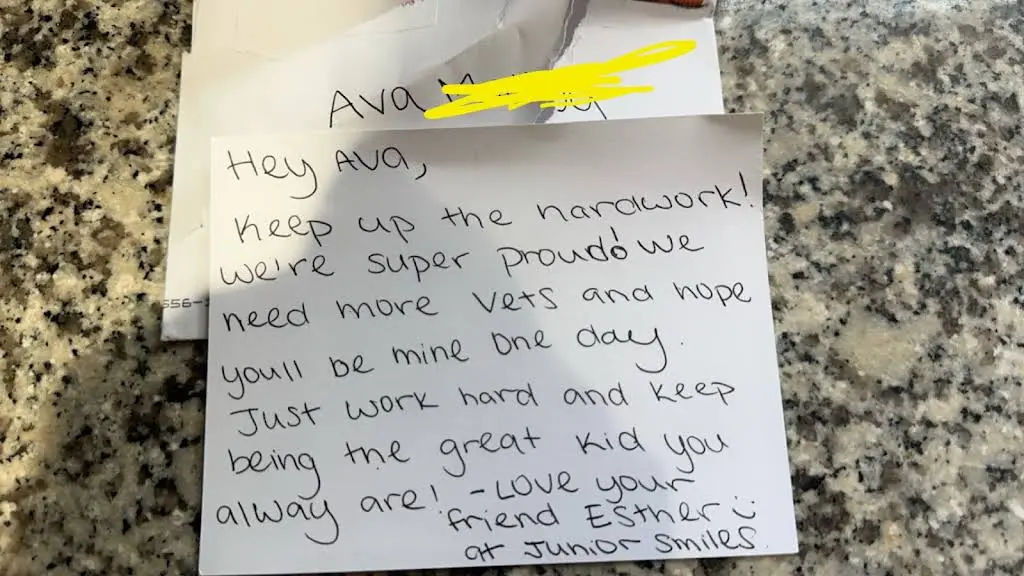 Ava
Hey Ava,
Keep up the hardwork!
we're super proud! we
need more vets and hope
youll be mine one day.
Just work hard and keep
being the great kid you
alway are! - Love your
friend Esther
at Junior Smiles.
556-